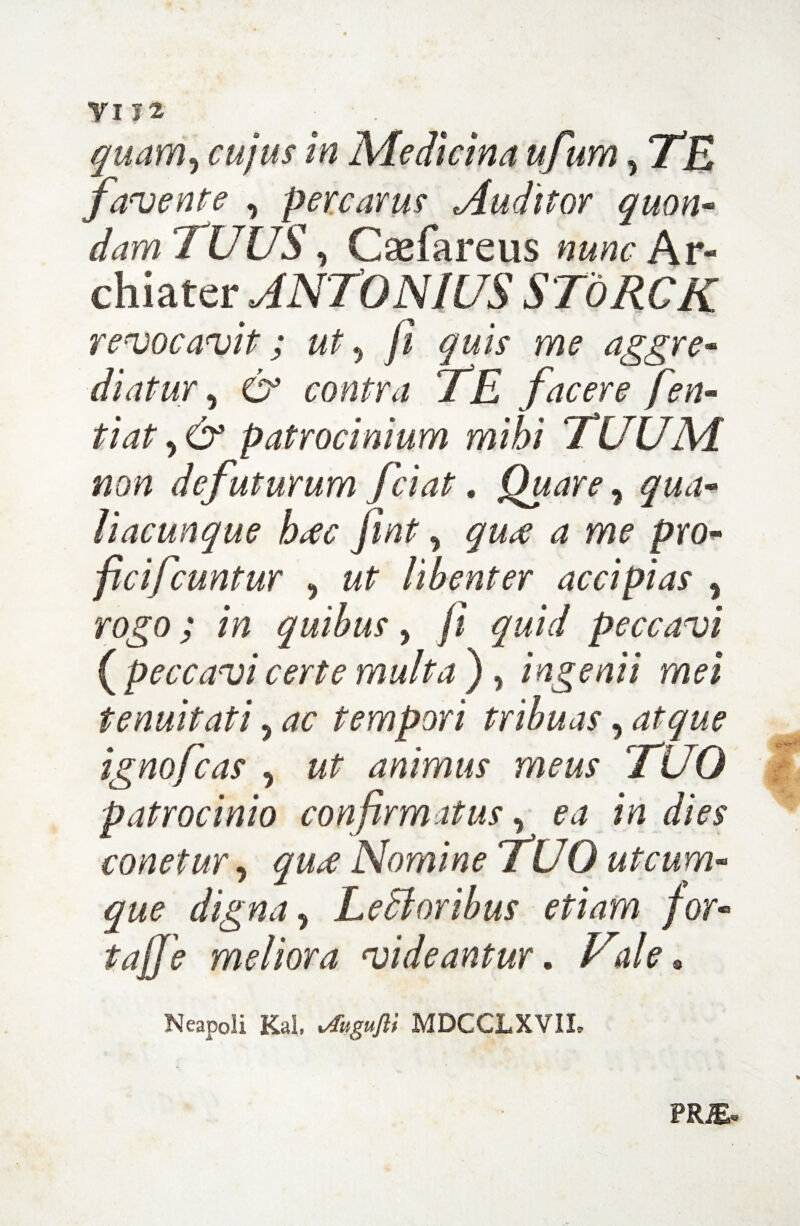 VIII
quam, cujus in Medicina uſum, TE
favente, percarus Auditor quon-
dam TUUS, Cæſareus nunc Ar-
chiater ANTONIUS STöRCK
revocavit; ut, ſi quis me aggre-
diatur, & contra TE facere ſen-
tiat, & patrocinium mihi TUUM
non defuturum ſciat. Quare, qua-
liacunque hæc ſint, quæ a me pro-
ficiſcuntur, ut libenter accipias,
rogo; in quibus, ſi quid peccavi
(peccavi certe multa), ingenii mei
tenuitati, ac tempori tribuas, atque
ignoſcas, ut animus meus TUO
patrocinio confirmatus, ea in dies
conetur, quæ Nomine TUO utcum-
que digna, Lectoribus etiam for-
taſſe meliora videantur. Vale.
Neapoli Kal. Auguſti MDCCLXVII.
PRÆ-